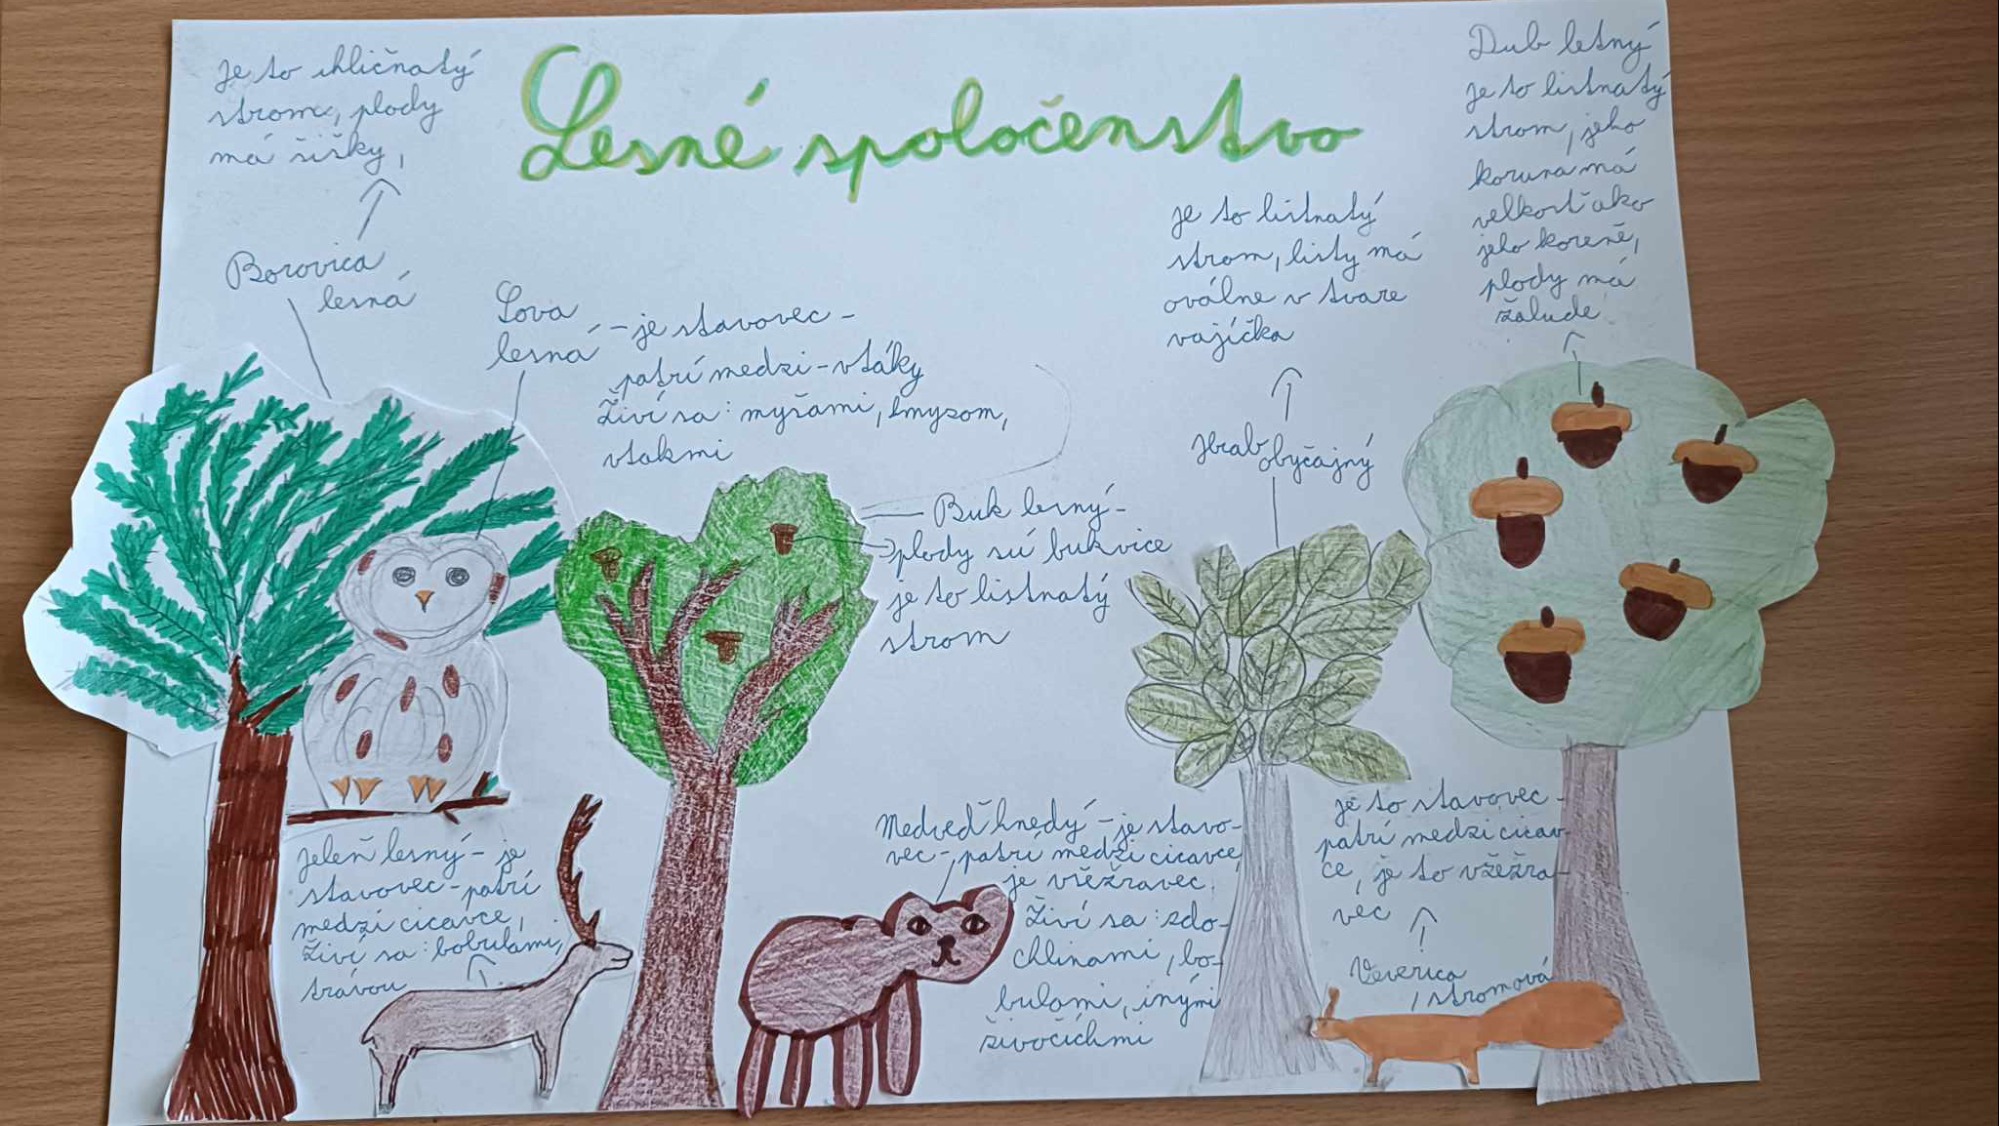 Lesné spoločenstvo
je to ihličnatý
strom, plody
má šišky,
Borovica
lesná
Sova
lesná - je stavovec -
patrí medzi - vtáky
Živí sa: myšami, hmyzom,
vtakmi
Buk lesný -
plody sú bukvice
je to listnatý
strom
je to listnatý
strom, listy má
oválne v tvare
vajíčka
Hrab
obyčajný
Dub letný
je to listnatý
strom, jeho
koruna má
velkosť ako
jeho koreně,
plody má
žalude
Jeleň lesný - je
stavovec - patrí
medzi cicavce,
Živí sa: bobulami,
trávou
Medveď hnedý - je stavo-
vec - patrí medzi cicavce
je všežravec,
Živí sa: zdo-
chlinami, bo-
bulami, inými
živočíchmi
je to stavovec -
patrí medzi cicav-
ce, je to všežra-
vec
Veverica
stromová